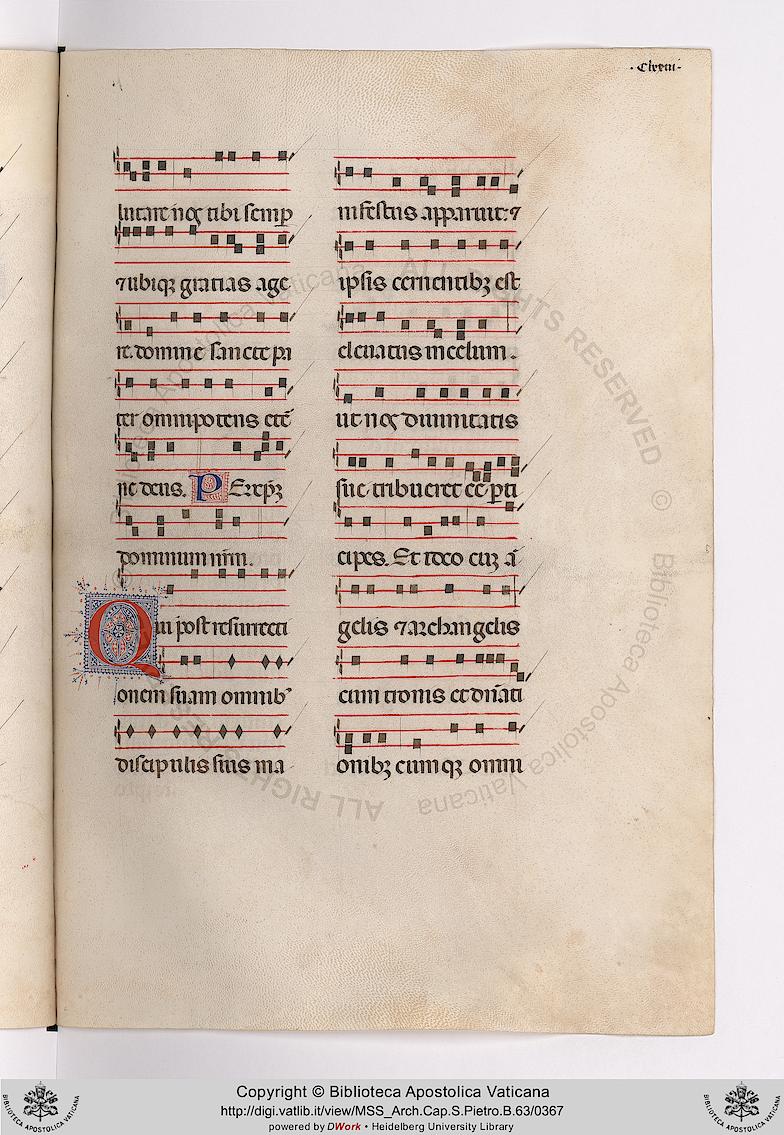 ·Clxxiii·
lutare nos tibi semp
⁊ ubiqꝫ gratias age
re. domine sancte pa
ter omnipotens etē
ne deus. P Er xp̄ꝫ
dominum nr̄m.
Qui post resurrecti
onem suam omnibꝰ
discipulis suis ma
nifestus apparuit: ⁊
ipsis cernentibꝫ est
eleuatus in celum.
ut nos diuinitatis
sue tribueret eē ꝑti
cipes. Et ideo cuꝫ ā
gelis ⁊ archangelis
cum tronis et dn̄ati
onibꝫ cumqꝫ omni
ALL RIGHTS RESERVED © Biblioteca Apostolica Vaticana
Copyright © Biblioteca Apostolica Vaticana
http://digi.vatlib.it/view/MSS_Arch.Cap.S.Pietro.B.63/0367
powered by DWork • Heidelberg University Library
BIBLIOTECA APOSTOLICA VATICANA
BIBLIOTECA APOSTOLICA VATICANA